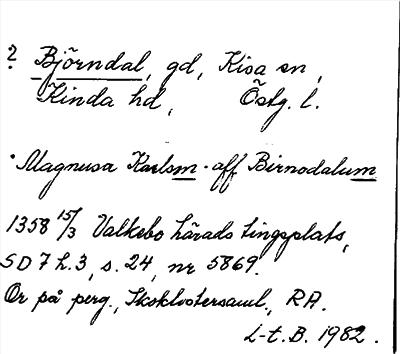 ? Björndal, gd, Kisa sn,
Kinda hd, Östg. l.
"Magnusa Karlsm - aff Birnodalum
1358 15/3 Valkebo härads tingsplats,
SD 7 h. 3, s. 24, nr 5869.
Or på perg., Skoklostersaml., RA.
L-t. B. 1982.